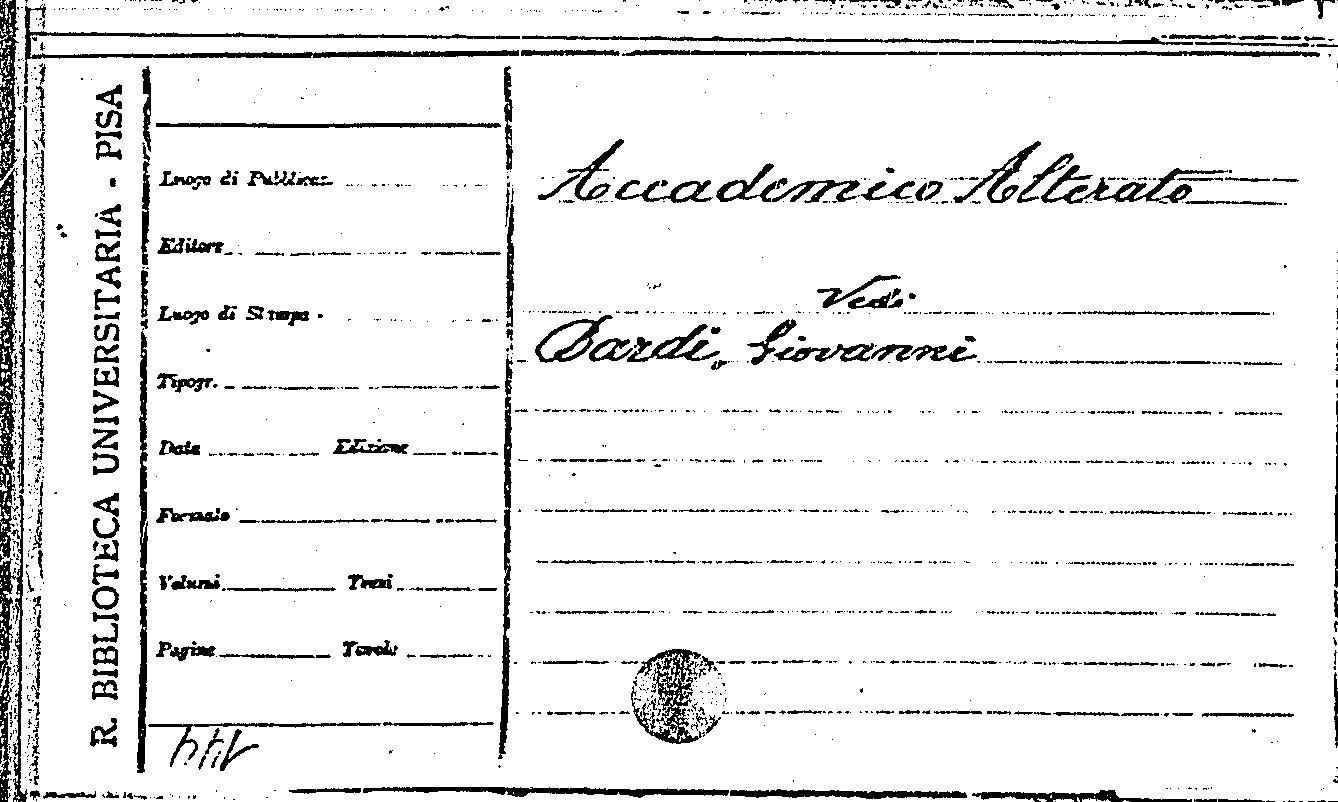 R. BIBLIOTECA UNIVERSITARIA - PISA
Luogo di Pubblicaz.
Editore
Luogo di Stampa
Tipogr.
Data Edizione
Formato
Volumi Tomi
Pagine Tavole
Accademico Alterato
Vedi
Bardi, Giovanni